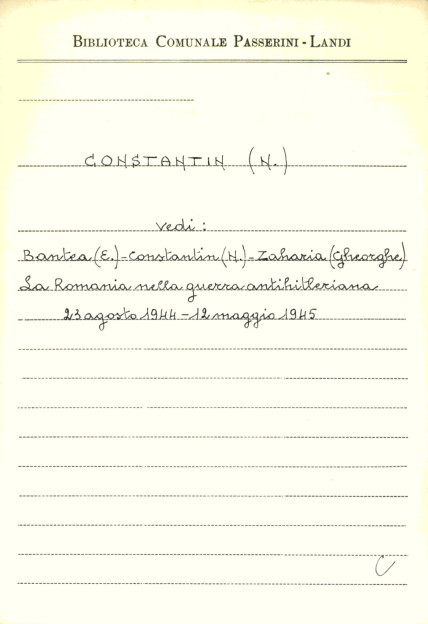 BIBLIOTECA COMUNALE PASSERINI - LANDI
CONSTANTIN (N.)
vedi :
Bantea (E.) - Constantin (N.) - Zaharia (Gheorghe)
La Romania nella guerra antihitleriana
23 agosto 1944 - 12 maggio 1945
C